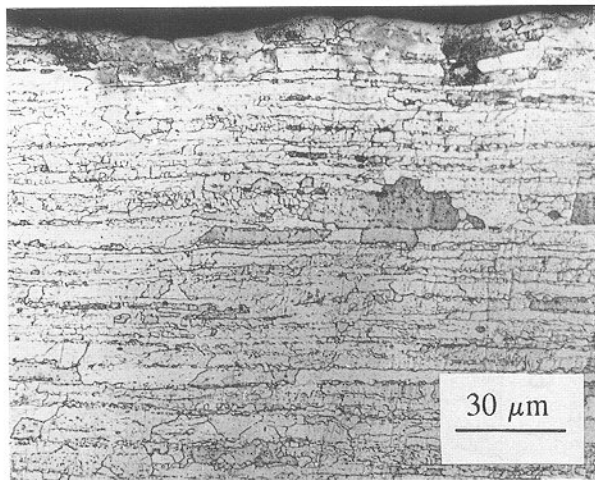 30 μm